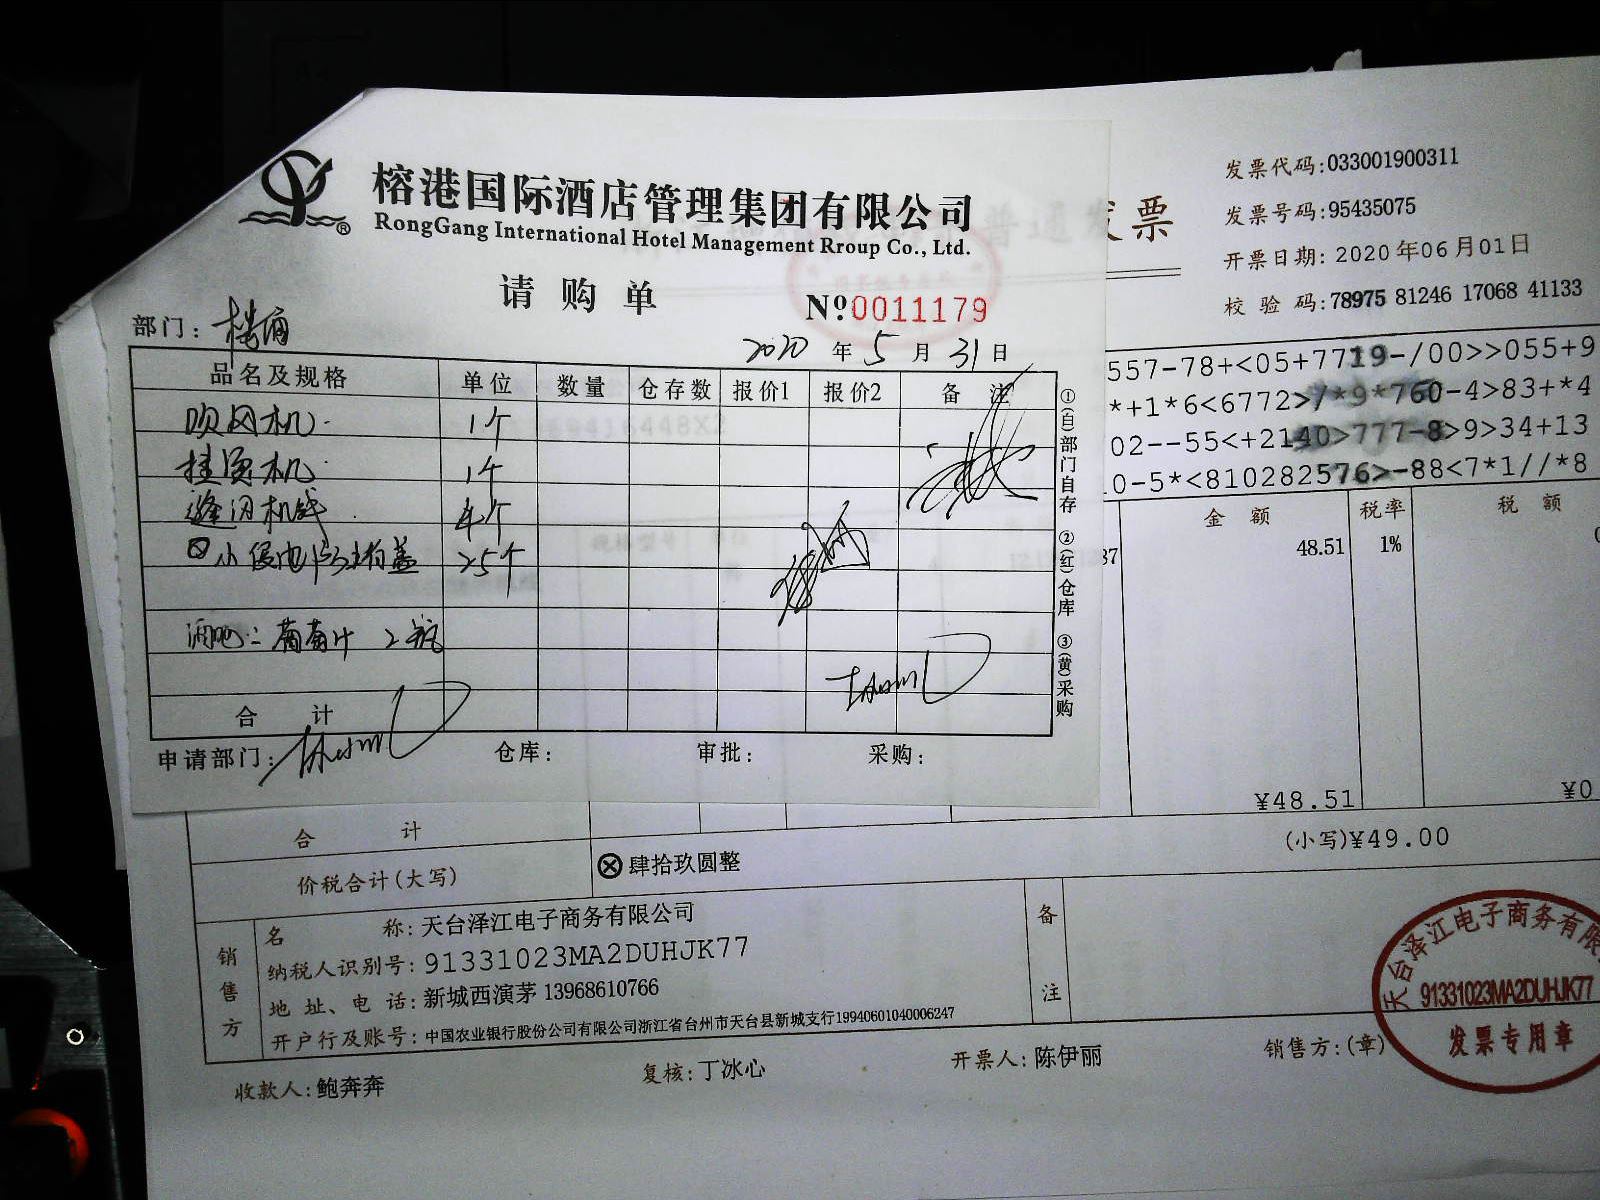 榕港国际酒店管理集团有限公司
RongGang International Hotel Management Rroup Co., Ltd.
请购单
№0011179
部门:
2020年5月31日
品名及规格 单位 数量 仓存数 报价1 报价2 备注
吹风机 1个
挂烫机 1个
缝纫机线 4个
25个
酒吧: 葡萄汁 2瓶
合计
申请部门: 仓库: 审批: 采购:
①(白)部门自存 ②(红)仓库 ③(黄)采购
发票
发票代码:033001900311
发票号码:95435075
开票日期: 2020年06月01日
校验码:78975 81246 17068 41133
557-78+<05+7719-/00>>055+9
*+1*6<6772>/*9*760-4>83+*4
02--55<+2140>777-8>9>34+13
0-5*<810282576>-88<7*1//*8
金额 税率 税额
48.51 1%
¥48.51 ¥0
合计
价税合计(大写) ⊗肆拾玖圆整 (小写)¥49.00
销售方
名称:天台泽江电子商务有限公司
纳税人识别号:91331023MA2DUHJK77
地址、电话:新城西演茅 13968610766
开户行及账号:中国农业银行股份公司有限公司浙江省台州市天台县新城支行19940601040006247
备注
收款人:鲍奔奔 复核:丁冰心 开票人:陈伊丽 销售方:(章)
天台泽江电子商务有限
91331023MA2DUHJK77
发票专用章